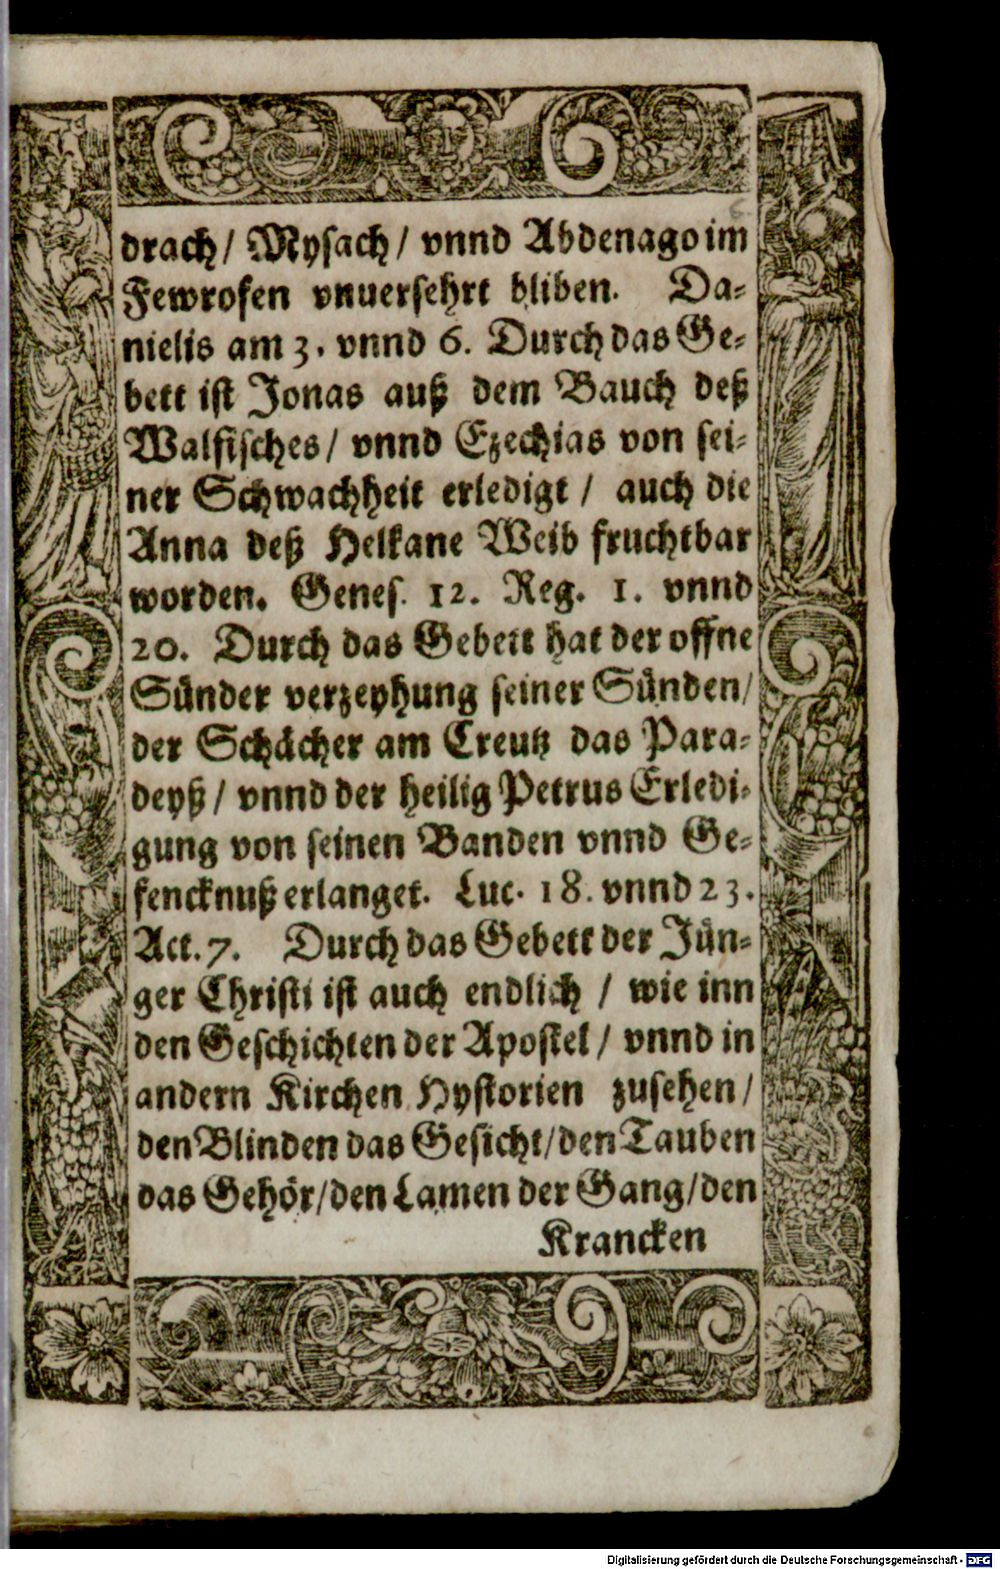 drach/ Mysach/ vnnd Abdenago im
Fewrofen vnuersehrt bliben. Da-
nielis am 3. vnnd 6. Durch das Ge-
bett ist Jonas auß dem Bauch deß
Walfisches/ vnnd Ezechias von sei-
ner Schwachheit erledigt/ auch die
Anna deß Helkane Weib fruchtbar
worden. Genes. 12. Reg. 1. vnnd
20. Durch das Gebett hat der offne
Sünder verzeyhung seiner Sünden/
der Schächer am Creutz das Para-
deyß/ vnnd der heilig Petrus Erledi-
gung von seinen Banden vnnd Ge-
fencknuß erlanget. Luc. 18. vnnd 23.
Act. 7. Durch das Gebett der Jün-
ger Christi ist auch endlich/ wie inn
den Geschichten der Apostel/ vnnd in
andern Kirchen Hystorien zusehen/
den Blinden das Gesicht/ den Tauben
das Gehör/ den Lamen der Gang/ den
Krancken
Digitalisierung gefördert durch die Deutsche Forschungsgemeinschaft - DFG